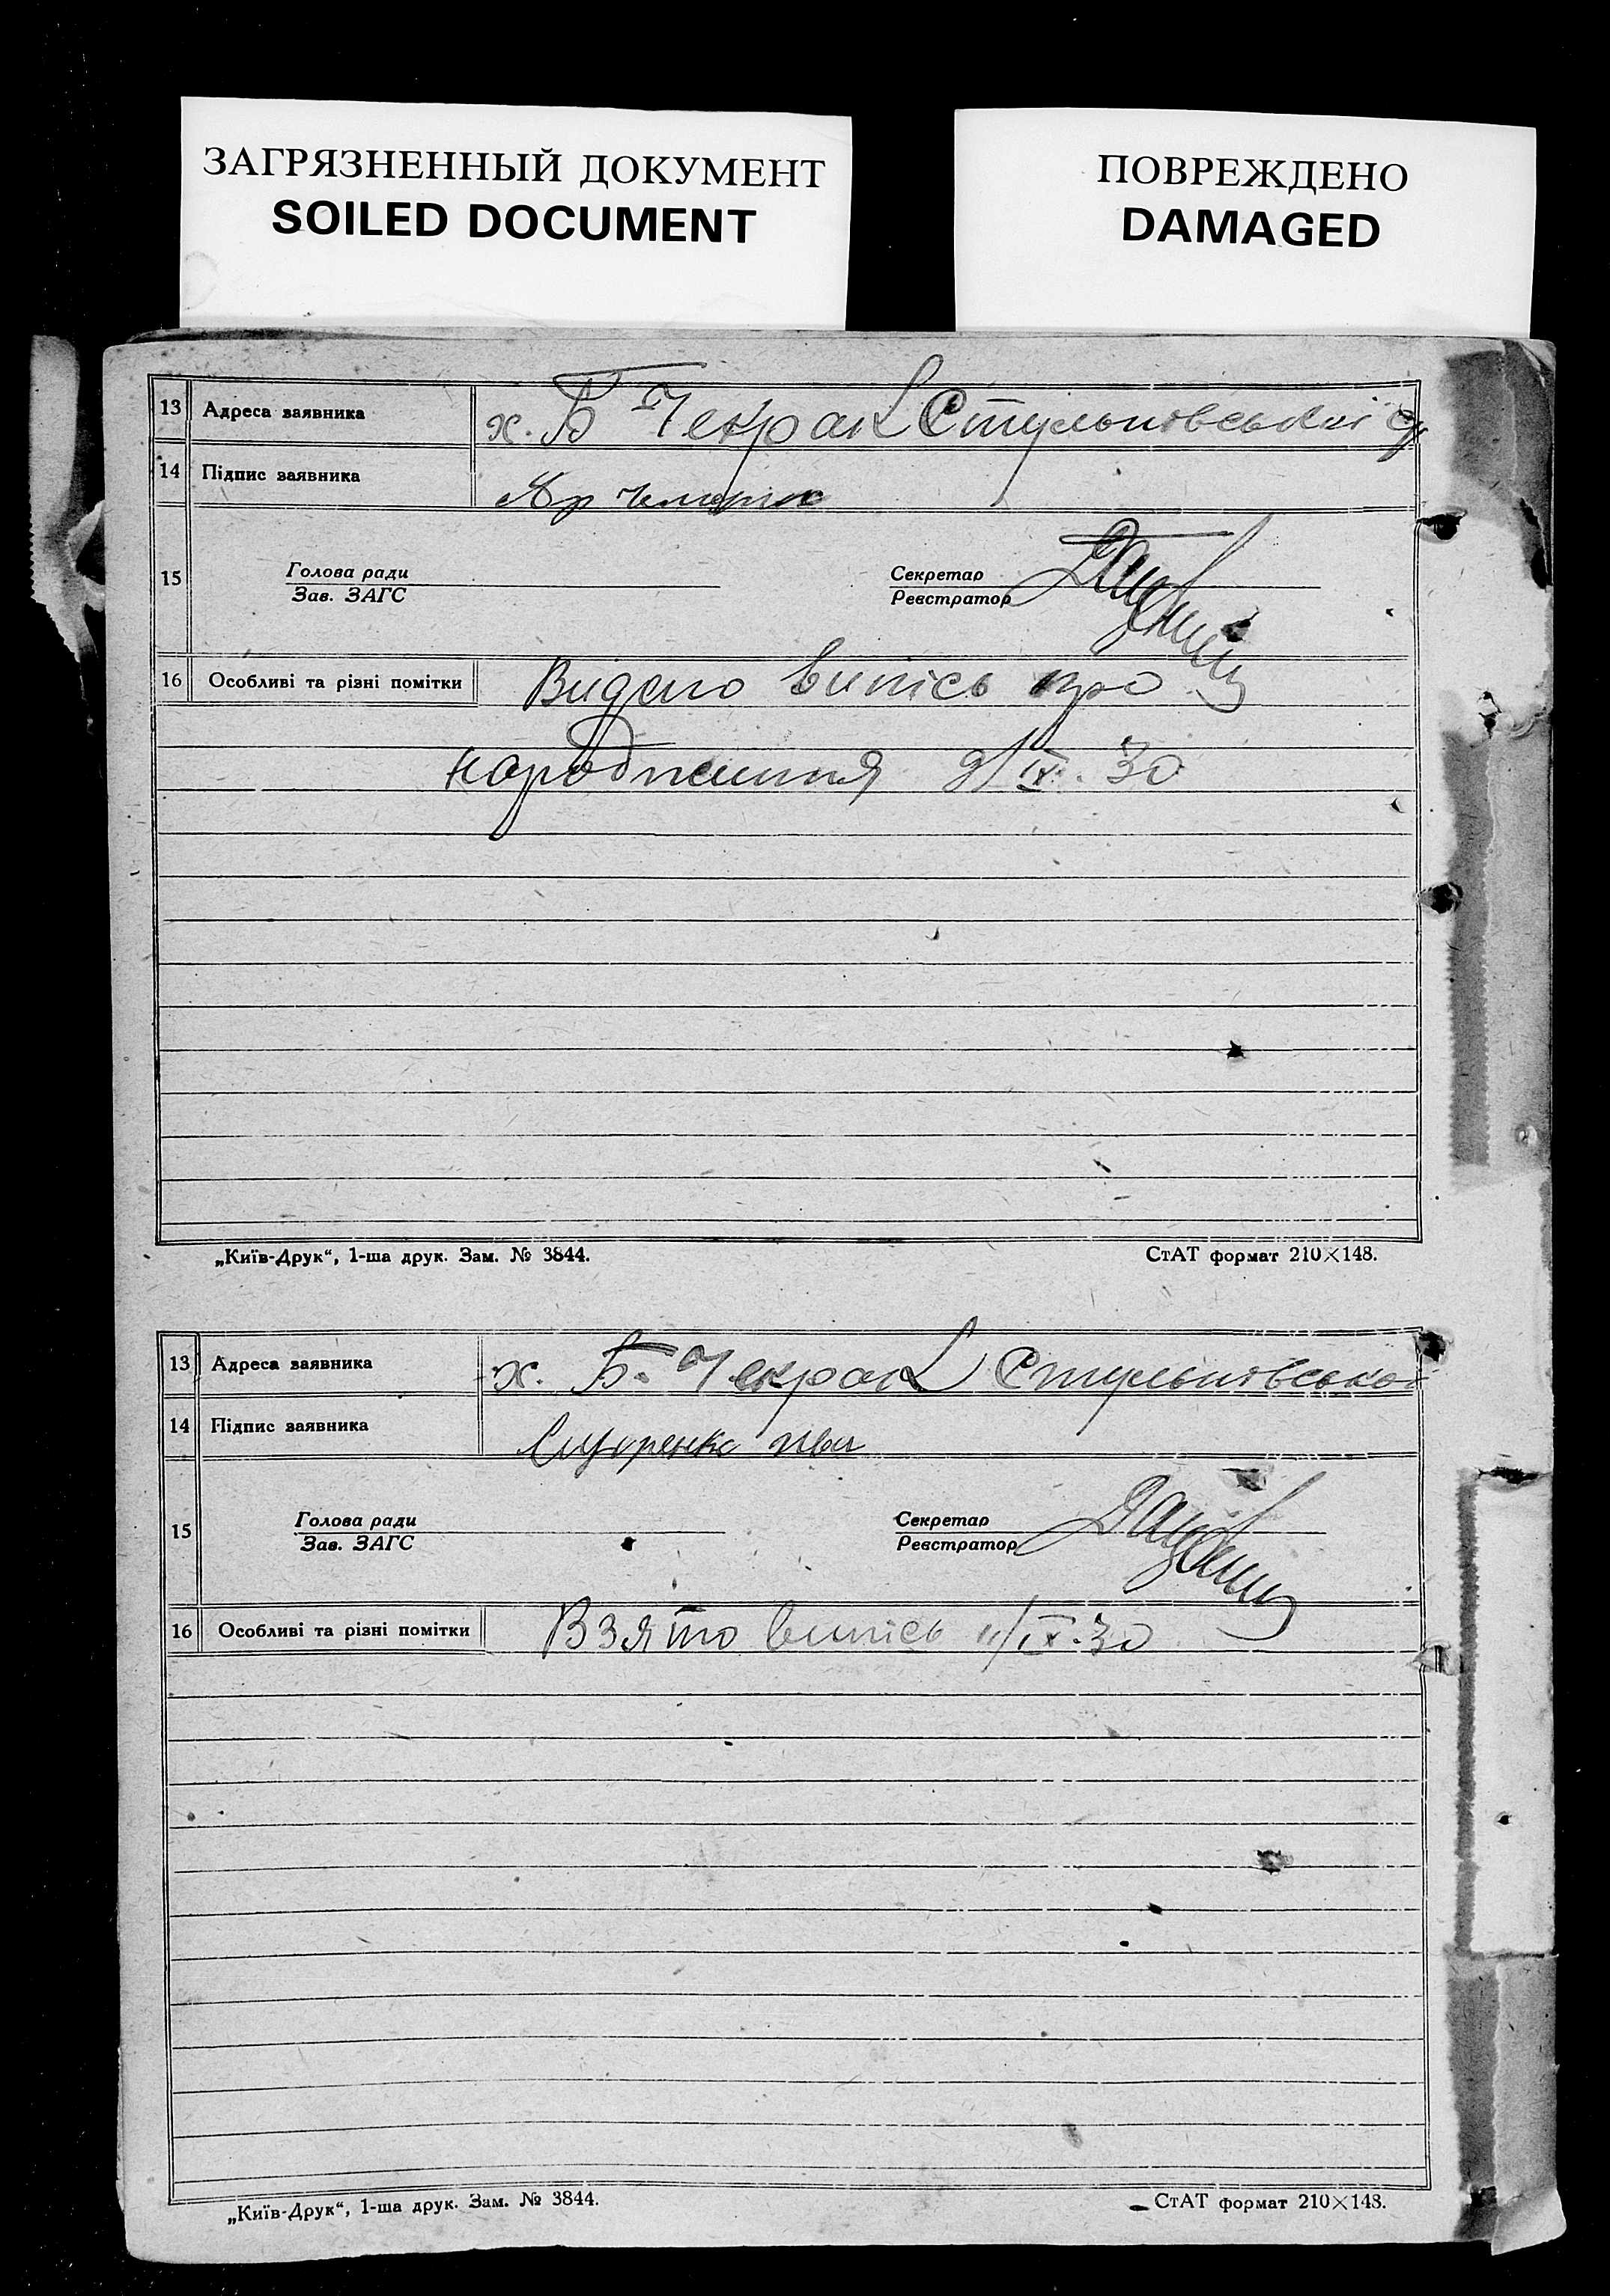 ЗАГРЯЗНЕННЫЙ ДОКУМЕНТ
SOILED DOCUMENT
ПОВРЕЖДЕНО
DAMAGED
13 Адреса заявника х. Б Чекрак
14 Підпис заявника
15 Голова ради Секретар
Зав. ЗАГС Реєстратор
16 Особливі та різні помітки Видано випісь про
народження 9/IX. 30
„Київ-Друк“, 1-ша друк. Зам. № 3844. СтАТ формат 210×148.
13 Адреса заявника х. Б. Чекрак
14 Підпис заявника
15 Голова ради Секретар
Зав. ЗАГС Реєстратор
16 Особливі та різні помітки Взято випісь 11/IX.30
„Київ-Друк“, 1-ша друк. Зам. № 3844. СтАТ формат 210×148.